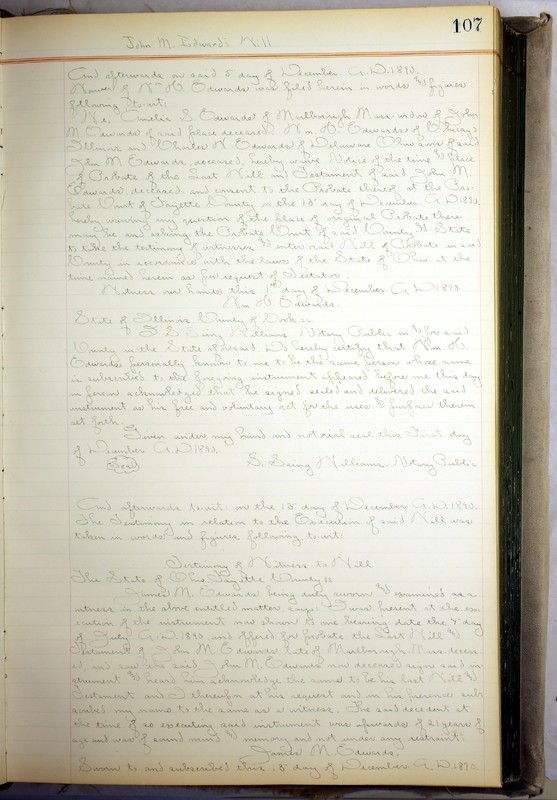 107
John M. Edwards Will
And afterwards on said 5" day of December. A.D. 1890.
Waiver of Wm H. Edwards was filed herein in words & figures
following to.wit:
We, Amelia S. Edwards of Marlborough Mass. widow of John
M. Edwards of said place deceased. Wm. H. Edwards of Chicago
Illinois and Charles W. Edwards of Delaware Ohio sons of said
John M. Edwards, deceased, hereby waive Notice of the time & place
of Probate of the Last Will and Testament of said John M.
Edwards deceased and consent to the Probate thereof at the Pro-
bate Court of Fayette County on the 13" day of December A.D. 1890.
hereby waiving any question of the place of original Probate there
may be and asking the Probate Court of said County & State
to take the testimony of witnesses & enter said Will of Probate in said
County in accordance with the laws of the State of Ohio at the
time named herein as for request of Testator.
Witness our hands this 1st day of December A.D. 1890
Wm H. Edwards.
State of Illinois County of Cook ss
I S. Williams, Notary Public in & for said
County in the State aforesaid, Do hereby certify that Wm. H.
Edwards personally known to me to be the same person whose name
is subscribed to the foregoing instrument appeared before me this day
in person acknowledged that he signed sealed and delivered the said
instrument as his free and voluntary act for the uses & purposes therein
set forth.
Given under my hand and notarial seal this First day
of December A.D. 1890.
Seal
S. Williams, Notary Public
And afterwards to.wit: on the 13" day of December A.D. 1890.
The Testimony in relation to the Execution of said Will was
taken in words and figures following to wit:
Testimony of Witness to Will
The State of Ohio Fayette County ss
James M. Edwards being duly sworn & examined as a
witness in the above entitled matter, says: I was present at the exe-
cution of the instrument now shown to me bearing date the day
of July A.D. 1890, and offered for probate the Last Will &
Testament of John M. Edwards late of Marlborough Mass. deceas
ed, and saw the said John M. Edwards now deceased signs said in-
strument & heard him acknowledge the same to be his last Will &
Testament and I thereupon at his request and in his presence sub
scribed my name to the same as a witness. The said decedent at
the time of so executing said instrument was upwards of 21 years of
age and was of sound mind & memory and not under any restraint:
James M. Edwards.
Sworn to and subscribed this 13" day of December A.D. 1890.